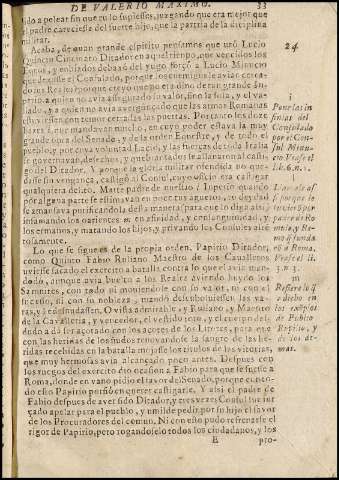 DE VALERIO MAXIMO. 33
do a pelear sin que tu lo supiesses, juzgando que era mejor que
el padre careciesse del fuerte hijo, que la patria de la diciplina
militar.
Acaba, de quan grande espiritu pensamos que usò Lucio
Quincio Cincinato Ditador en aquel tiempo, que vencidos los
y embiados debaxo del yugo forçò a Lucio Minucio
el Consulado, porque los enemigos le avian cerca-
dos los Reales? porque creyò que no era dino de tan grande Im-
perio, a quien no avia assegurado su valor, sino la fosa, y el va-
llado, y a quien no avia avergonçado que las armas Romanas
estuviessen con temor cerradas las puertas. Por tanto los doze
que mandavan mucho, en cuyo poder estava la muy
grande onra del Senado, y de la orden Equestre, y de todo el
pueblo, y por cuya voluntad Lacio, y las fuerças de toda Italia
se governavan, deshechos, y quebrantados se allanaron al casti-
go del Ditador. Y porque la gloria militar ofendida no que-
dasse sin vengança, castigò al Consul, cuyo oficio era castigar
qualquiera delito. Marte padre de nuestro Imperio quando
por alguna parte se estimava en poco tus agueros, tu deydad
se amansava purificandola desta manera para que lo dissimulasse
infamando los parientes en afinidad, y consanguinidad, y
los ermanos, y matando los hijos, y privando los Consules
tosamente.
Lo que se sigue es de la propia orden. Papirio Ditador,
como Quinto Fabio Ruliano Maestro de los Cavalleros
uviesse sacado el exercito a batalla contra lo que el avia man-
dado, aunque avia buelto a los Reales aviendo huydo los
Samnites, con todo ni moviendole con su valor, ni con el
sucesso, ni con su nobleza, mandò descubriessen las va-
ras, y le desnudassen. O vista admirable, y Ruliano, y Maestro
de la Cavalleria, y vencedor, el vestido roto, y el cuerpo des-
nudo a dò ser açotado con los açotes de los Litores, para que
con las heridas de los ñudos renovandose la sangre de las he-
ridas recebidas en la batalla mojasse los titulos de las vitorias,
que muy hermosas avia alcançado poco antes. Despues con
los ruegos del exercito dio ocasion a Fabio para que se fuesse a
Roma, donde en vano pidio el favor del Senado, porque con to-
do esso Papirio porfiò en querer castigarle. Y assi el padre de
Fabio despues de aver sido Ditador, y tres vezes Consul fue for-
çado apelar para el pueblo, y umilde pedir por su hijo el favor
de los Procuradores del comun. Ni con esto pudo refrenarse el
rigor de Papirio, pero rogandoselo todos los ciudadanos, y los
E pro-
24
i
Pone las in-
sinias del
Consulado
por el Con-
sul Minu-
cio Vease el
li. 6. n. 1.
l
porque se
3 n. 3.
m
Refiere lo q̃
a dicho en
los exẽplos
de Publio
Rupilio, y
de los
mar.